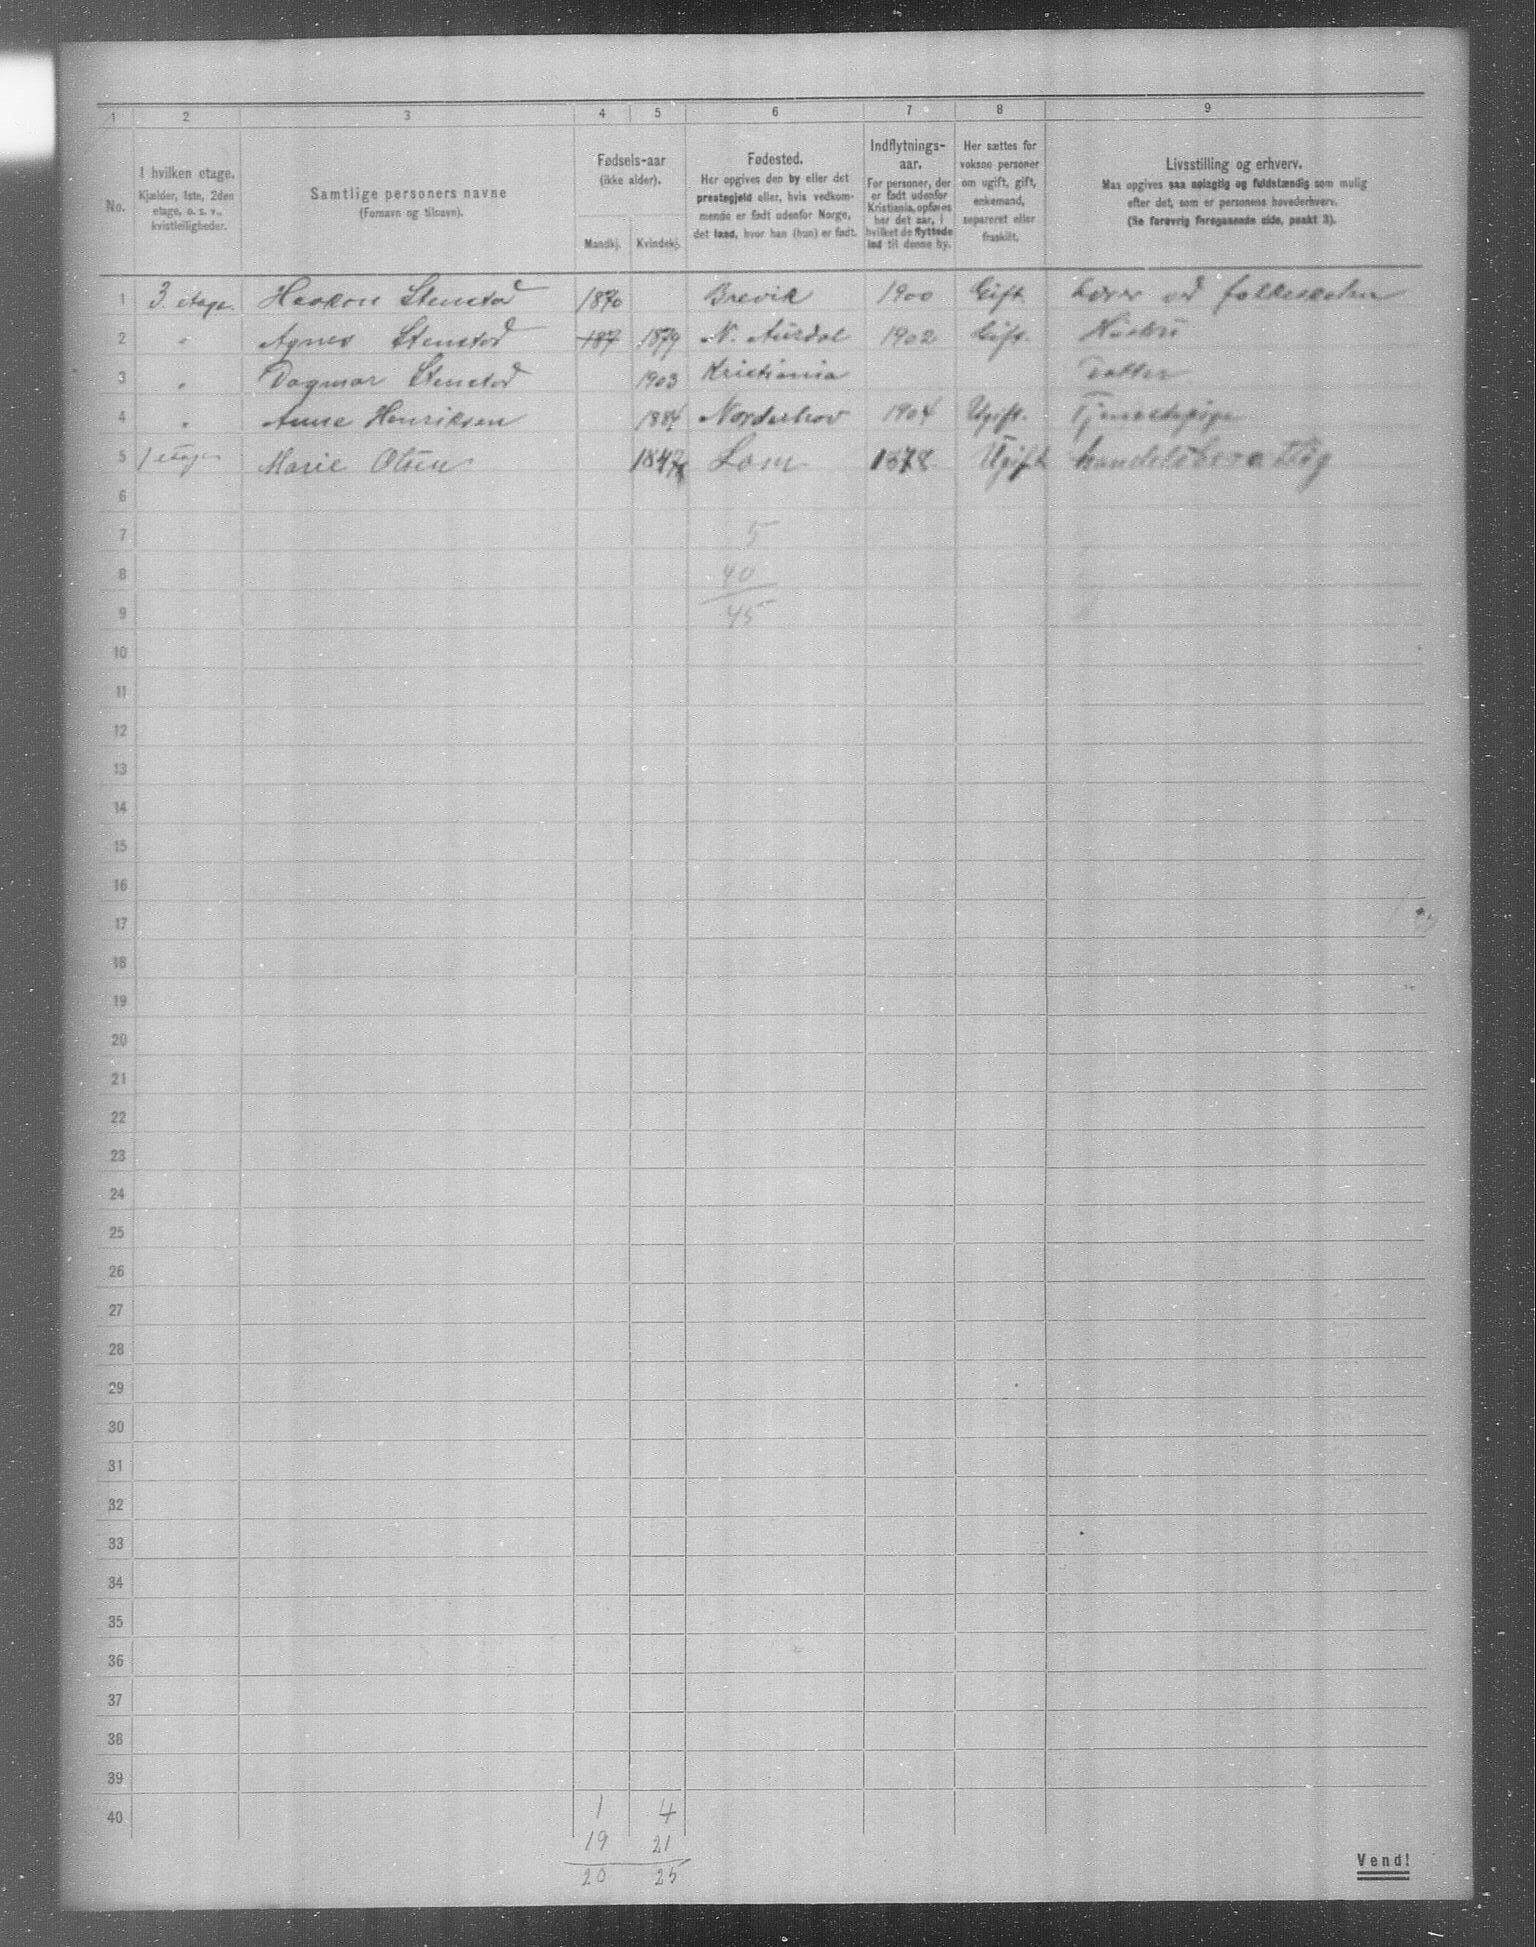 1 2 3 4 5 6 7 8 9
No.
I hvilken etage.
Kjælder, 1ste, 2den
etage, o. s. v.,
kvistleiligheder.
Samtlige personers navne
(Fornavn og tilnavn).
Fødsels-aar
(ikke alder).
Mandkj. Kvindekj.
Fødested.
Her opgives den by eller det
prestegjeld eller, hvis vedkom-
mende er født udenfor Norge,
det land, hvor han (hun) er født.
Indflytnings-
aar.
For personer, der
er født udenfor
Kristiania, opføres
her det aar, i
hvilket de flyttede
ind til denne by.
Her sættes for
voksne personer
om ugift, gift,
enkemand,
separeret eller
fraskilt.
Livsstilling og erhverv.
Maa opgives saa nøiagtig og fuldstændig som mulig
efter det, som er personens hovederhverv.
(Se forøvrig foregaaende side, punkt 3).
1 3. etage. Haakon Stenstad 1870 Brevik 1900 Gift Lærer ved folkeskolen
2 " Agnes Stenstad 187 1879 N. Aurdal 1902 Gift. Hustru
3 " Dagmar Stenstad 1903 Kristiania Datter
4 " Anne Henriksen 1884 Norderhov 1904 Ugift. Tjenestepige
5 1 etage Marie Olsen 1847 Lom 1878 Ugift
6
7 5
8 40
9 45
10
11
12
13
14
15
16
17
18
19
20
21
22
23
24
25
26
27
28
29
30
31
32
33
34
35
36
37
38
39
40 1 4
19 21
20 25
Vend!